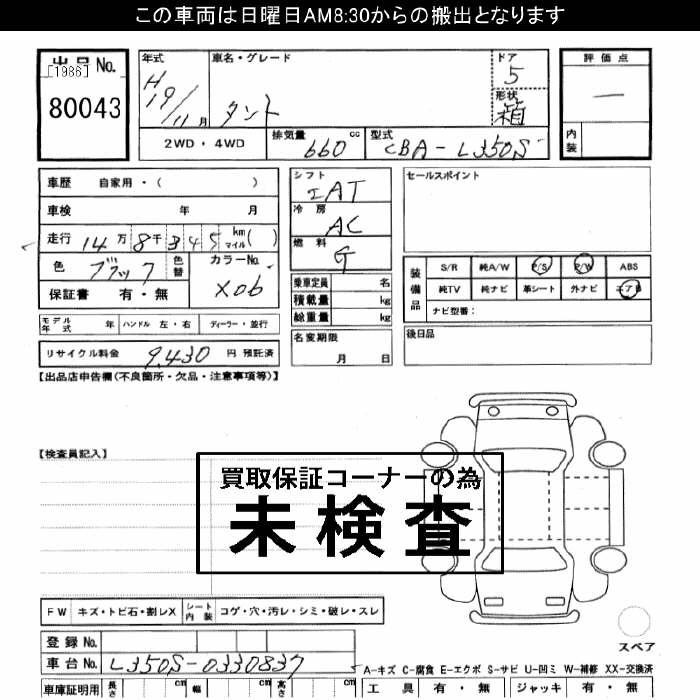 この車両は日曜日AM8:30からの搬出となります
出品No.
[1986]
80043
年式
H19/11月
車名・グレード
タント
ドア
5
形状
箱
2WD・4WD
排気量
660 cc
型式
CBA-L350S
評価点
一
内装
車歴 自家用・( )
車検 年 月
走行 14万8千345 km マイル ( )
色 ブラック 色替
カラーNo. X06
保証書 有・無
シフト
IAT
冷房
AC
燃料
G
乗車定員 名
積載量 kg
総重量 kg
名変期限
月 日
セールスポイント
装備品
S/R 純A/W P/S P/W ABS
純TV 純ナビ 革シート 外ナビ エアB
ナビ型番:
後日品
モデル年式 年 ハンドル 左・右 ディーラー・並行
リサイクル料金 9,430 円 預託済
【出品店申告欄(不良箇所・欠品・注意事項等)】
【検査員記入】
買取保証コーナーの為
未検査
FW キズ・トビ石・割レX シート内装 コゲ・穴・汚レ・シミ・破レ・スレ
スペア
登録No.
車台No. L350S-0330837
A-キズ C-腐食 E-エクボ S-サビ U-凹ミ W-補修 XX-交換済
車庫証明用 長さ cm 幅 cm 高さ cm
工具 有・無 ジャッキ 有・無